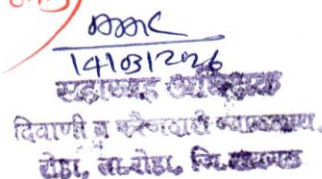 14/03/2026
सहाय्यक अधिक्षक
दिवाणी व फौजदारी न्यायालय,
रोहा, ता.रोहा, जि.रायगड